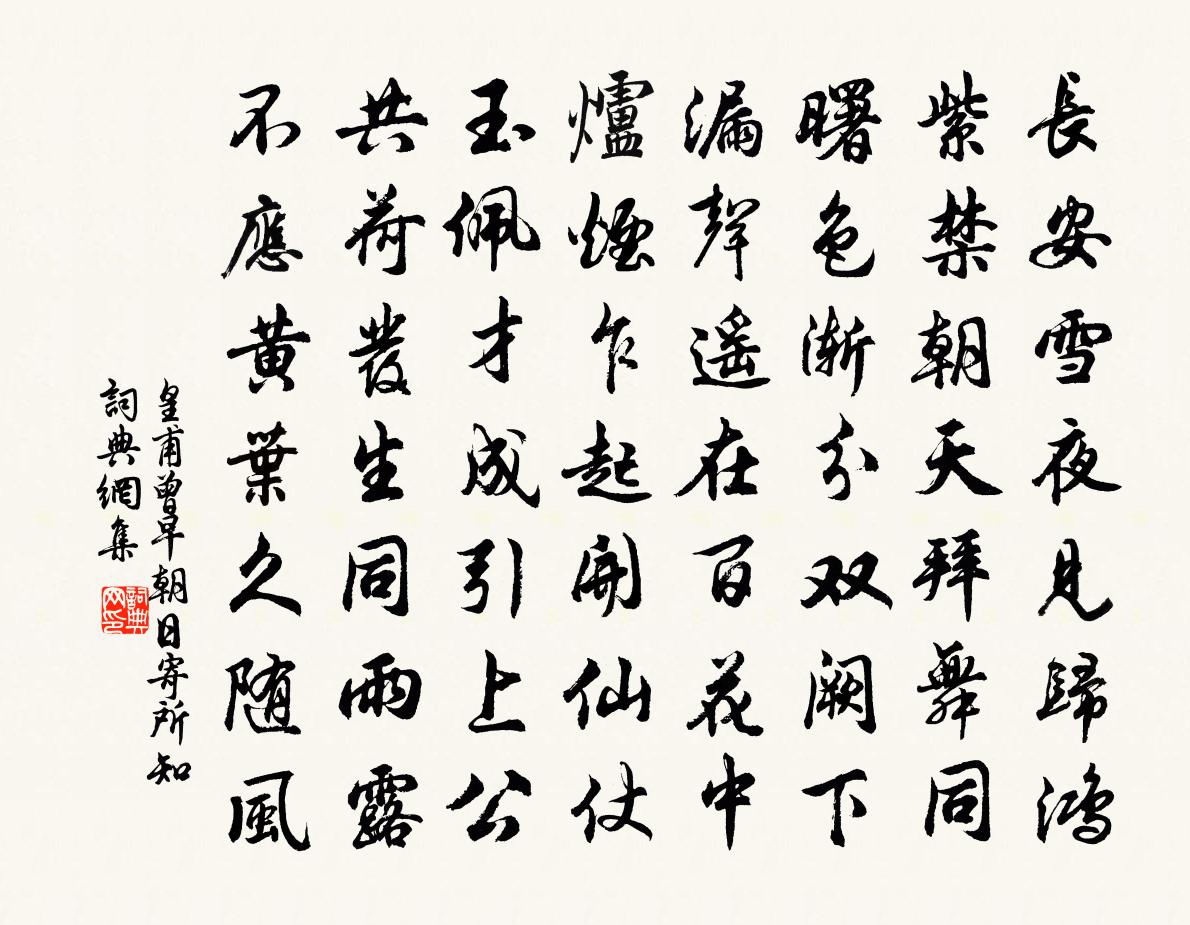 長安雪夜見歸鴻
紫禁朝天拜舞同
曙色漸分双闕下
漏聲遥在百花中
爐煙乍起開仙仗
玉佩才成引上公
共荷發生同雨露
不應黄葉久随風
皇甫曾早朝日寄所知
詞典網集
詞典网印